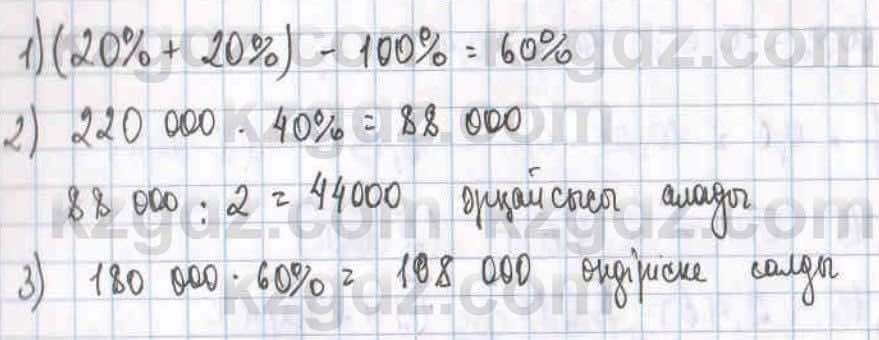 1) (20% + 20%) - 100% = 60%
2) 220 000 · 40% = 88 000
88 000 : 2 = 44000 әрқайсысы алады
3) 180 000 · 60% = 108 000 өндіріске салды
kzgdz.com